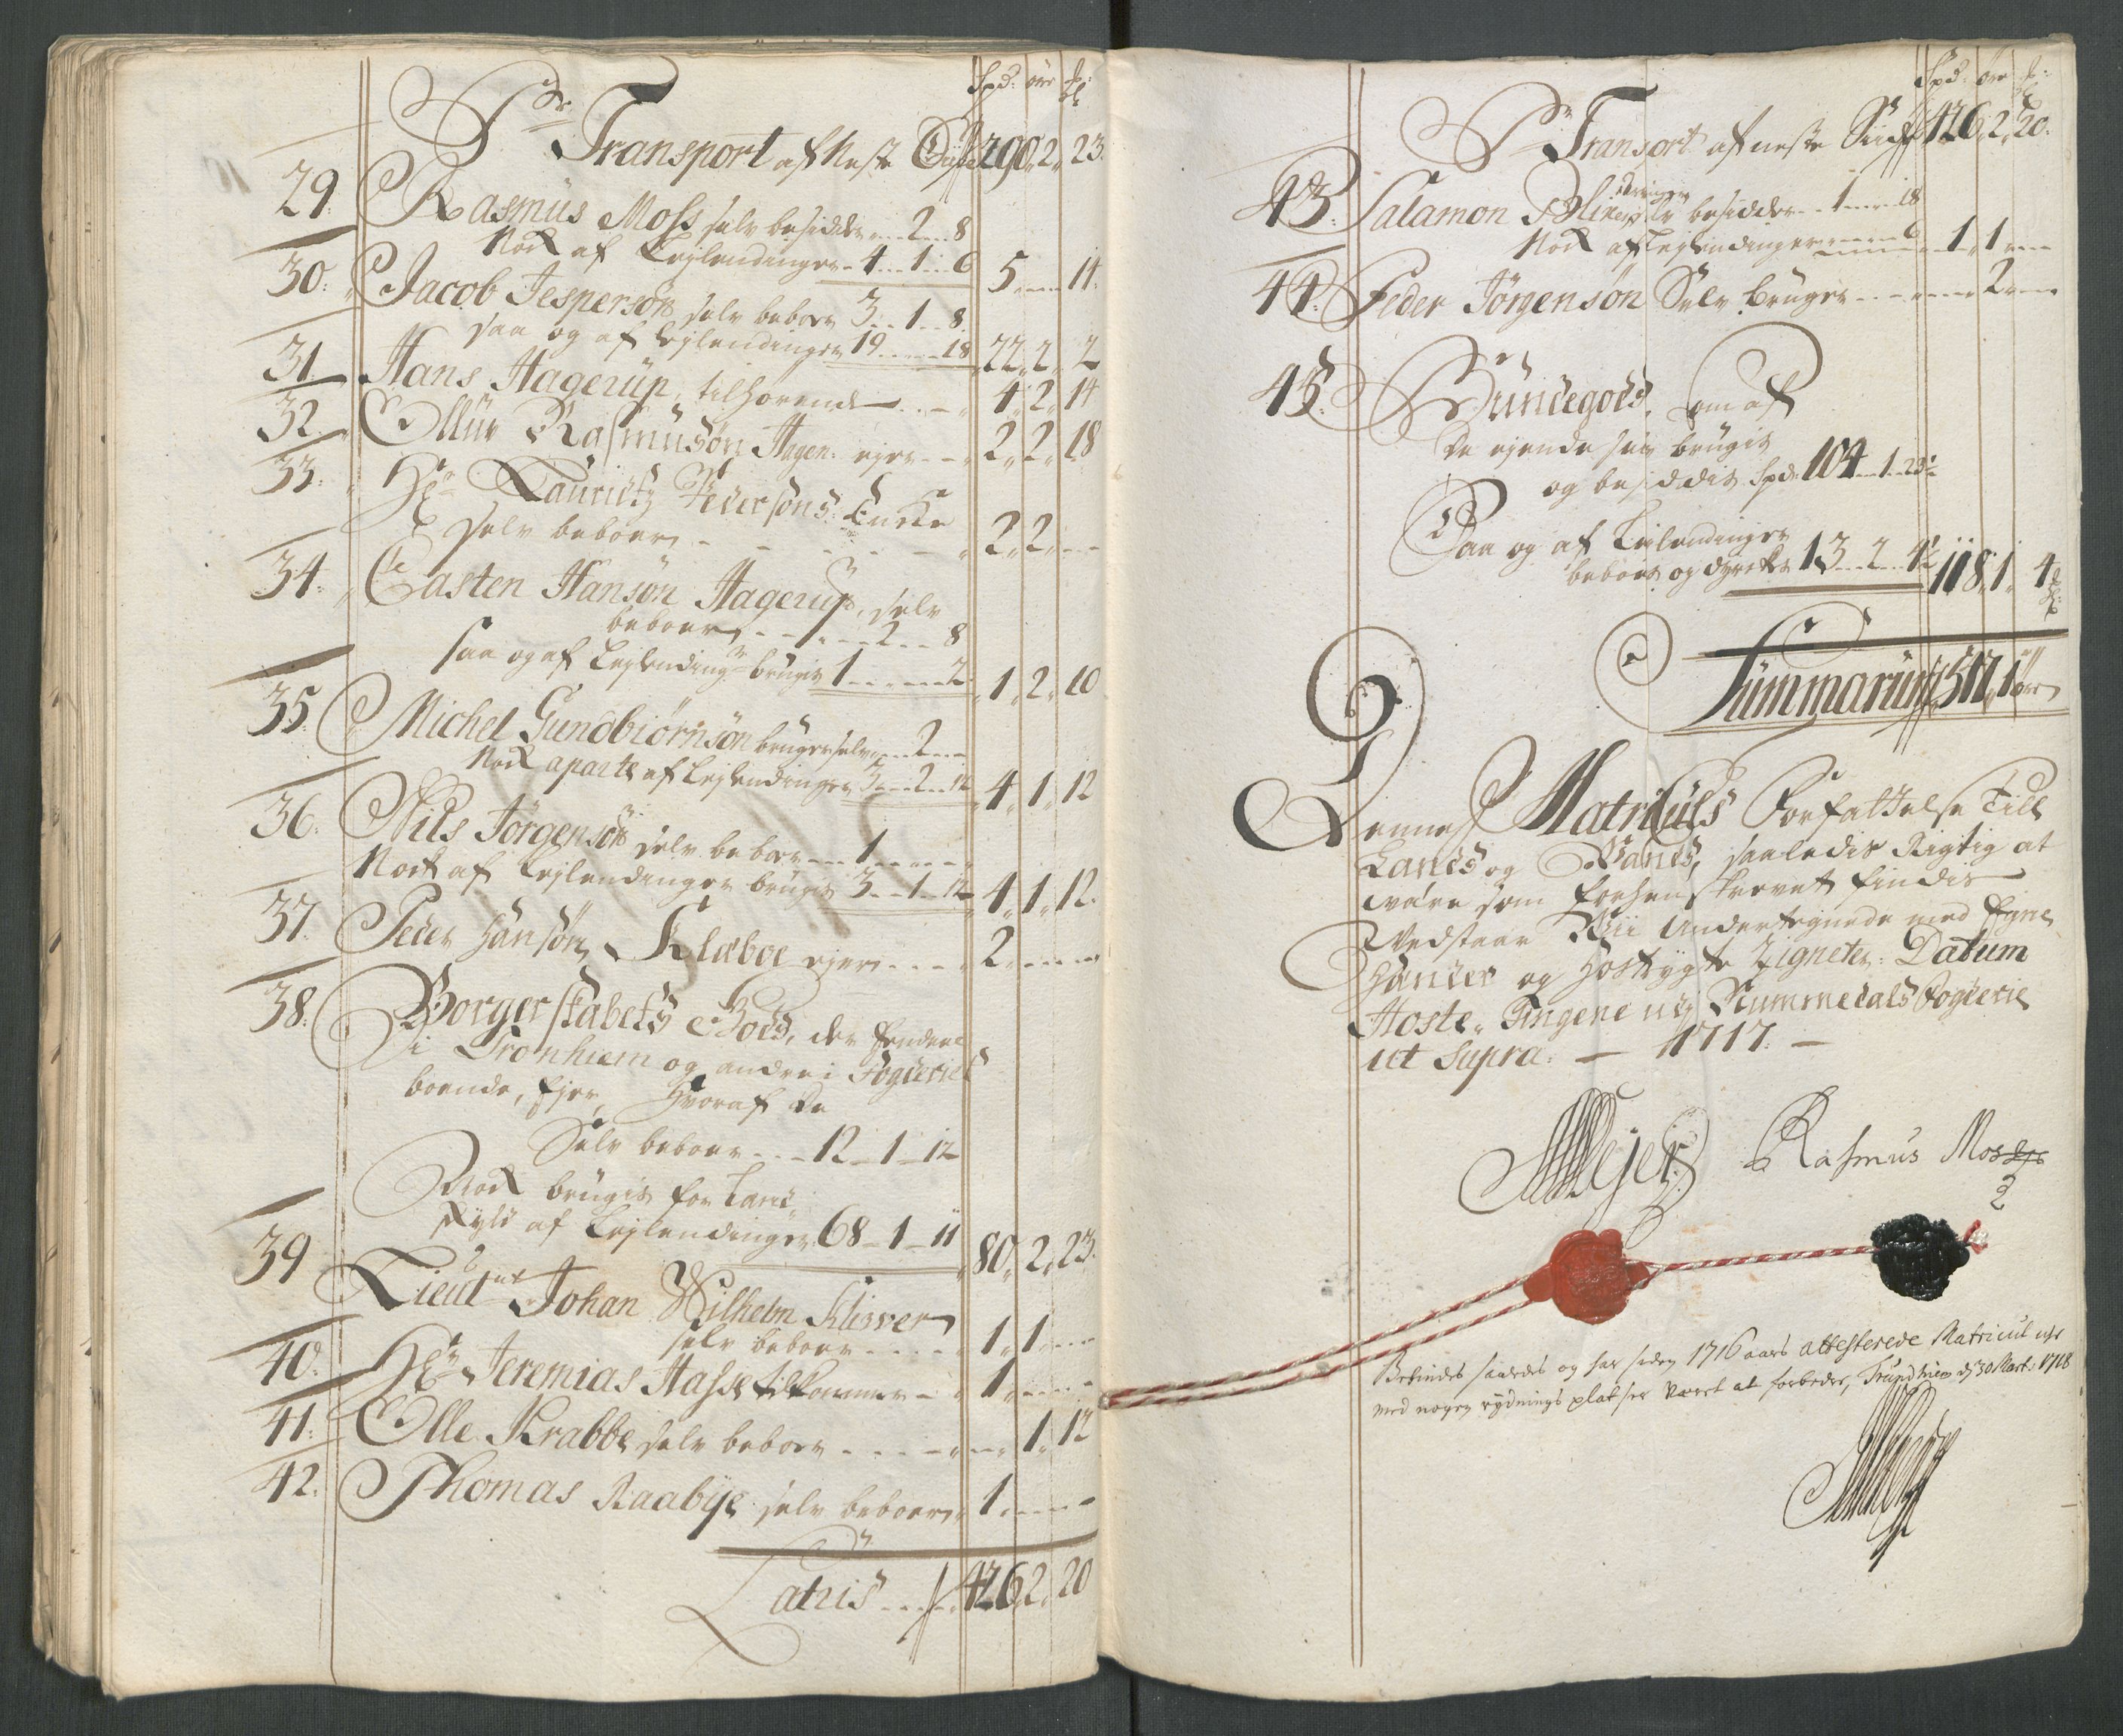 Spd: öre
Pr Transport af Neste Side 290 2 23
29 Rasmus Moss selv besidder 2 8
Nock af Lejlendinger 4 1 6 5 14
30: Jacob Jespersøn selv beboer 3 1 8
saa og af Lejlendinger 19 18 22 2 2
31 Hans Hagerüp, tilhörende 4 2 14
32. Ollüv Rasmüsön Hagen ejer 2 2 18
33. Hr Lauridtz Pedersøns Encke
selv beboer 2 2
34: Casten Hansøn Hagerüp, selv
beboer 2 8
saa og af Lejlending brüges 1 2 1 2 10
35. Michel Gundbiörnsön bruger selv 2
Nock aparte af Lejlendinger 3 2 12 4 1 12
36. Nils Jörgensön selv beboer 1
Nock af Lejlendinger bruges 3 1 12 4 1 12.
37. Peder Hansøn Klæboe ejer 2
38. Borgerskabets Gods, der
i Tronhiem og andre i Fogderiet
boende, Ejer, hvoraf de
Selv beboer 12 1 12
Nock brüges for Land
skyld af Lejlendinger 68 1 11 80 2 23.
39 Lieutnt Johan Wilhelm Klüwer
selv beboer 1 1
40. Hr Jeremias Hasse tilkommer 1
41. Olle Krabbe selv beboer 1 12
42. Thomas Raabye selv beboer 1
Latris 426 2 20
Spd: öre
Pr Transort af neste Siide 426 2 20.
43. Salamon selv besidder 1 18
Nock af Lejlendinger 6 1 1
44. Peder Jörgensön Selv brüger 2
45. Bündegods, som af
de ejende selv brüges
og besiddis Spd: 104 1 23½
Saa og af Lejlendinger
beboes og dyrckes 13 2 4½ 118 1 4
Summarum 547 1 öre
Denne Matriculs Forfattelse Till
Lands og Vands, saaledis Rigtig at
være som forhen skrevet findis
Vedstaar Wii Undertegnede med Egne
Hænder og hostrygte Zigneter. Datum
Höste Tingene udj Nummedals Fogderie
ut Supra. 1717.
Rasmus Mos
Befindes saaledes og har siden 1716 aars attesterede Matricul icke
med nogen rydnings pladtser været at forbedre, Trundhiem d. 30 Mart: 1718